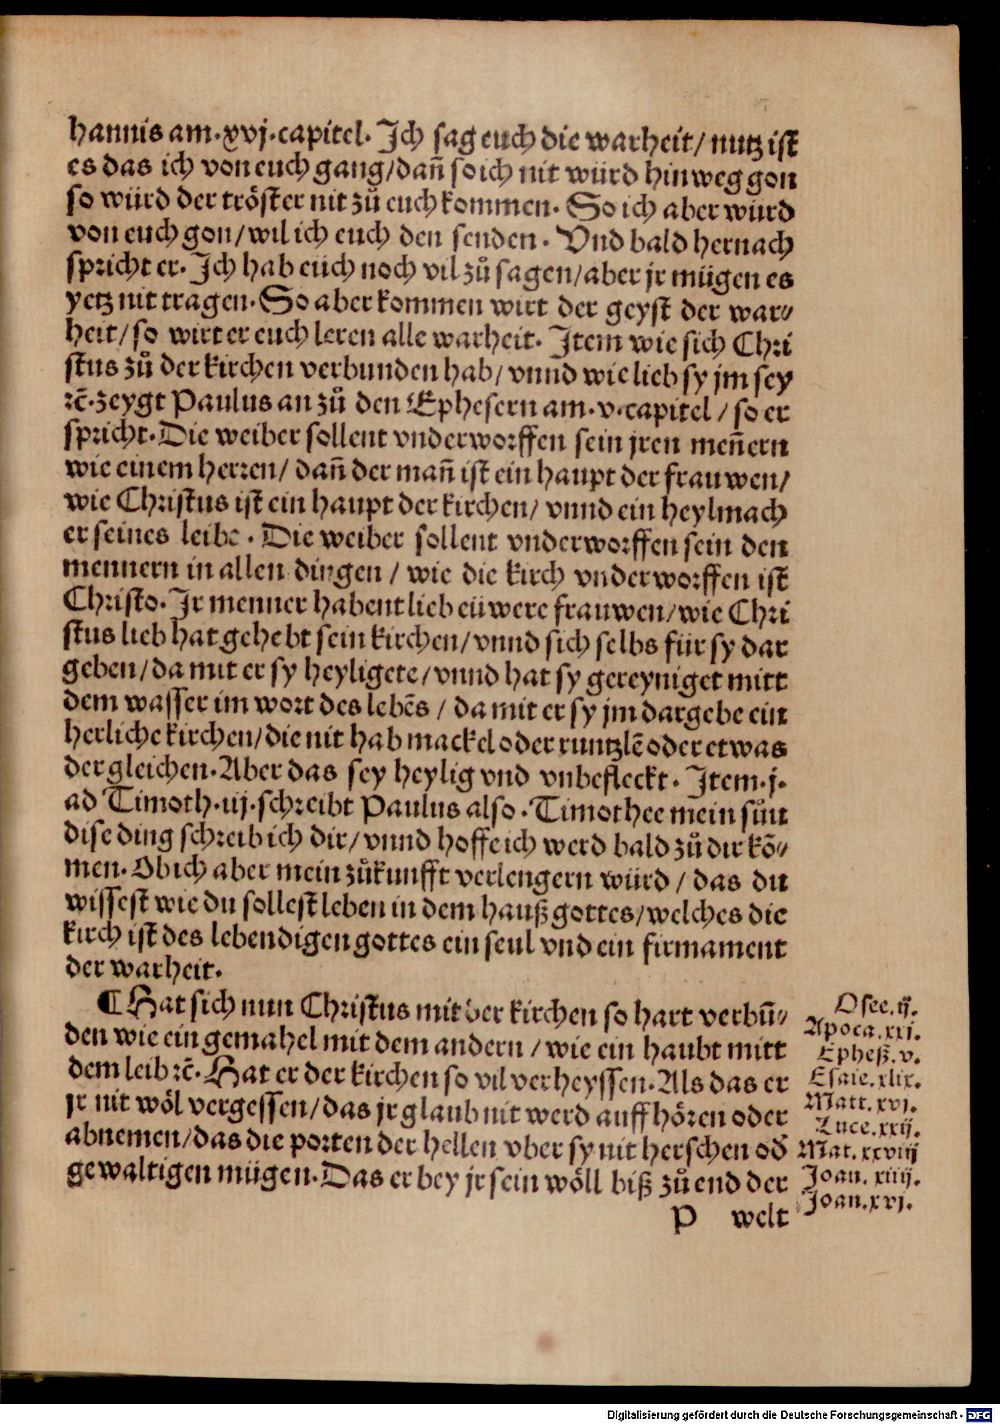 hannis am.xvj.capitel. Ich sag euch die warheit/ nutz ist
es das ich von euch gang/dañ so ich nit würd hinweg gon
so würd der tröster nit zů euch kommen. So ich aber würd
von euch gon/wil ich euch den senden. Vnd bald hernach
spricht er. Ich hab euch noch vil zů sagen/aber jr mügen es
yetz nit tragen. So aber kommen wirt der geyst der war⸗
heit/so wirt er euch leren alle warheit. Item wie sich Chri
stus zů der kirchen verbunden hab/ vnnd wie lieb sy jm sey
ꝛc̄.zeygt Paulus an zů den Ephesern am.v.capitel/so er
spricht.Die weiber sollent vnderworffen sein jren meñern
wie einem herren/ dañ der mañ ist ein haupt der frauwen/
wie Christus ist ein haupt der kirchen/ vnnd ein heylmach
er seines leibe. Die weiber sollent vnderworffen sein den
mennern in allen dingen / wie die kirch vnderworffen ist
Christo. Ir menner habent lieb eüwere frauwen/wie Chri
stus lieb hat gehebt sein kirchen/vnnd sich selbs für sy dar
geben/da mit er sy heyligete/vnnd hat sy gereyniget mitt
dem wasser im wort des lebēs / da mit er sy jm dargebe ein
herliche kirchen/die nit hab mackel oder runtzlē oder etwas
der gleichen.Aber das sey heylig vnd vnbefleckt. Item.j.
ad Timoth.iij.schreibt Paulus also. Timothee mein sůn
dise ding schreib ich dir/vnnd hoffe ich werd bald zů dir kō⸗
men. Ob ich aber mein zůkunfft verlengern würd / das du
wissest wie du sollest leben in dem hauß gottes/welches die
kirch ist des lebendigen gottes ein seul vnd ein firmament
der warheit.
¶ Hat sich nun Christus mit der kirchen so hart verbū⸗
den wie ein gemahel mit dem andern /wie ein haubt mitt
dem leib ꝛc̄. Hat er der kirchen so vil verheyssen.Als das er
jr nit wöl vergessen/das jr glaub nit werd auff hören oder
abnemen/das die porten der hellen vber sy nit herschen od̄
gewaltigen mügen.Das er bey jr sein wöll biß zů end der
P welt
Osee.ij.
Apoca.xxi.
Epheß.v.
Esaie.xlix.
Matt.xvj.
Luce.xxij.
Mat.xxviij
Joan.xiiij.
Joan.xvj.
Digitalisierung gefördert durch die Deutsche Forschungsgemeinschaft - DFG